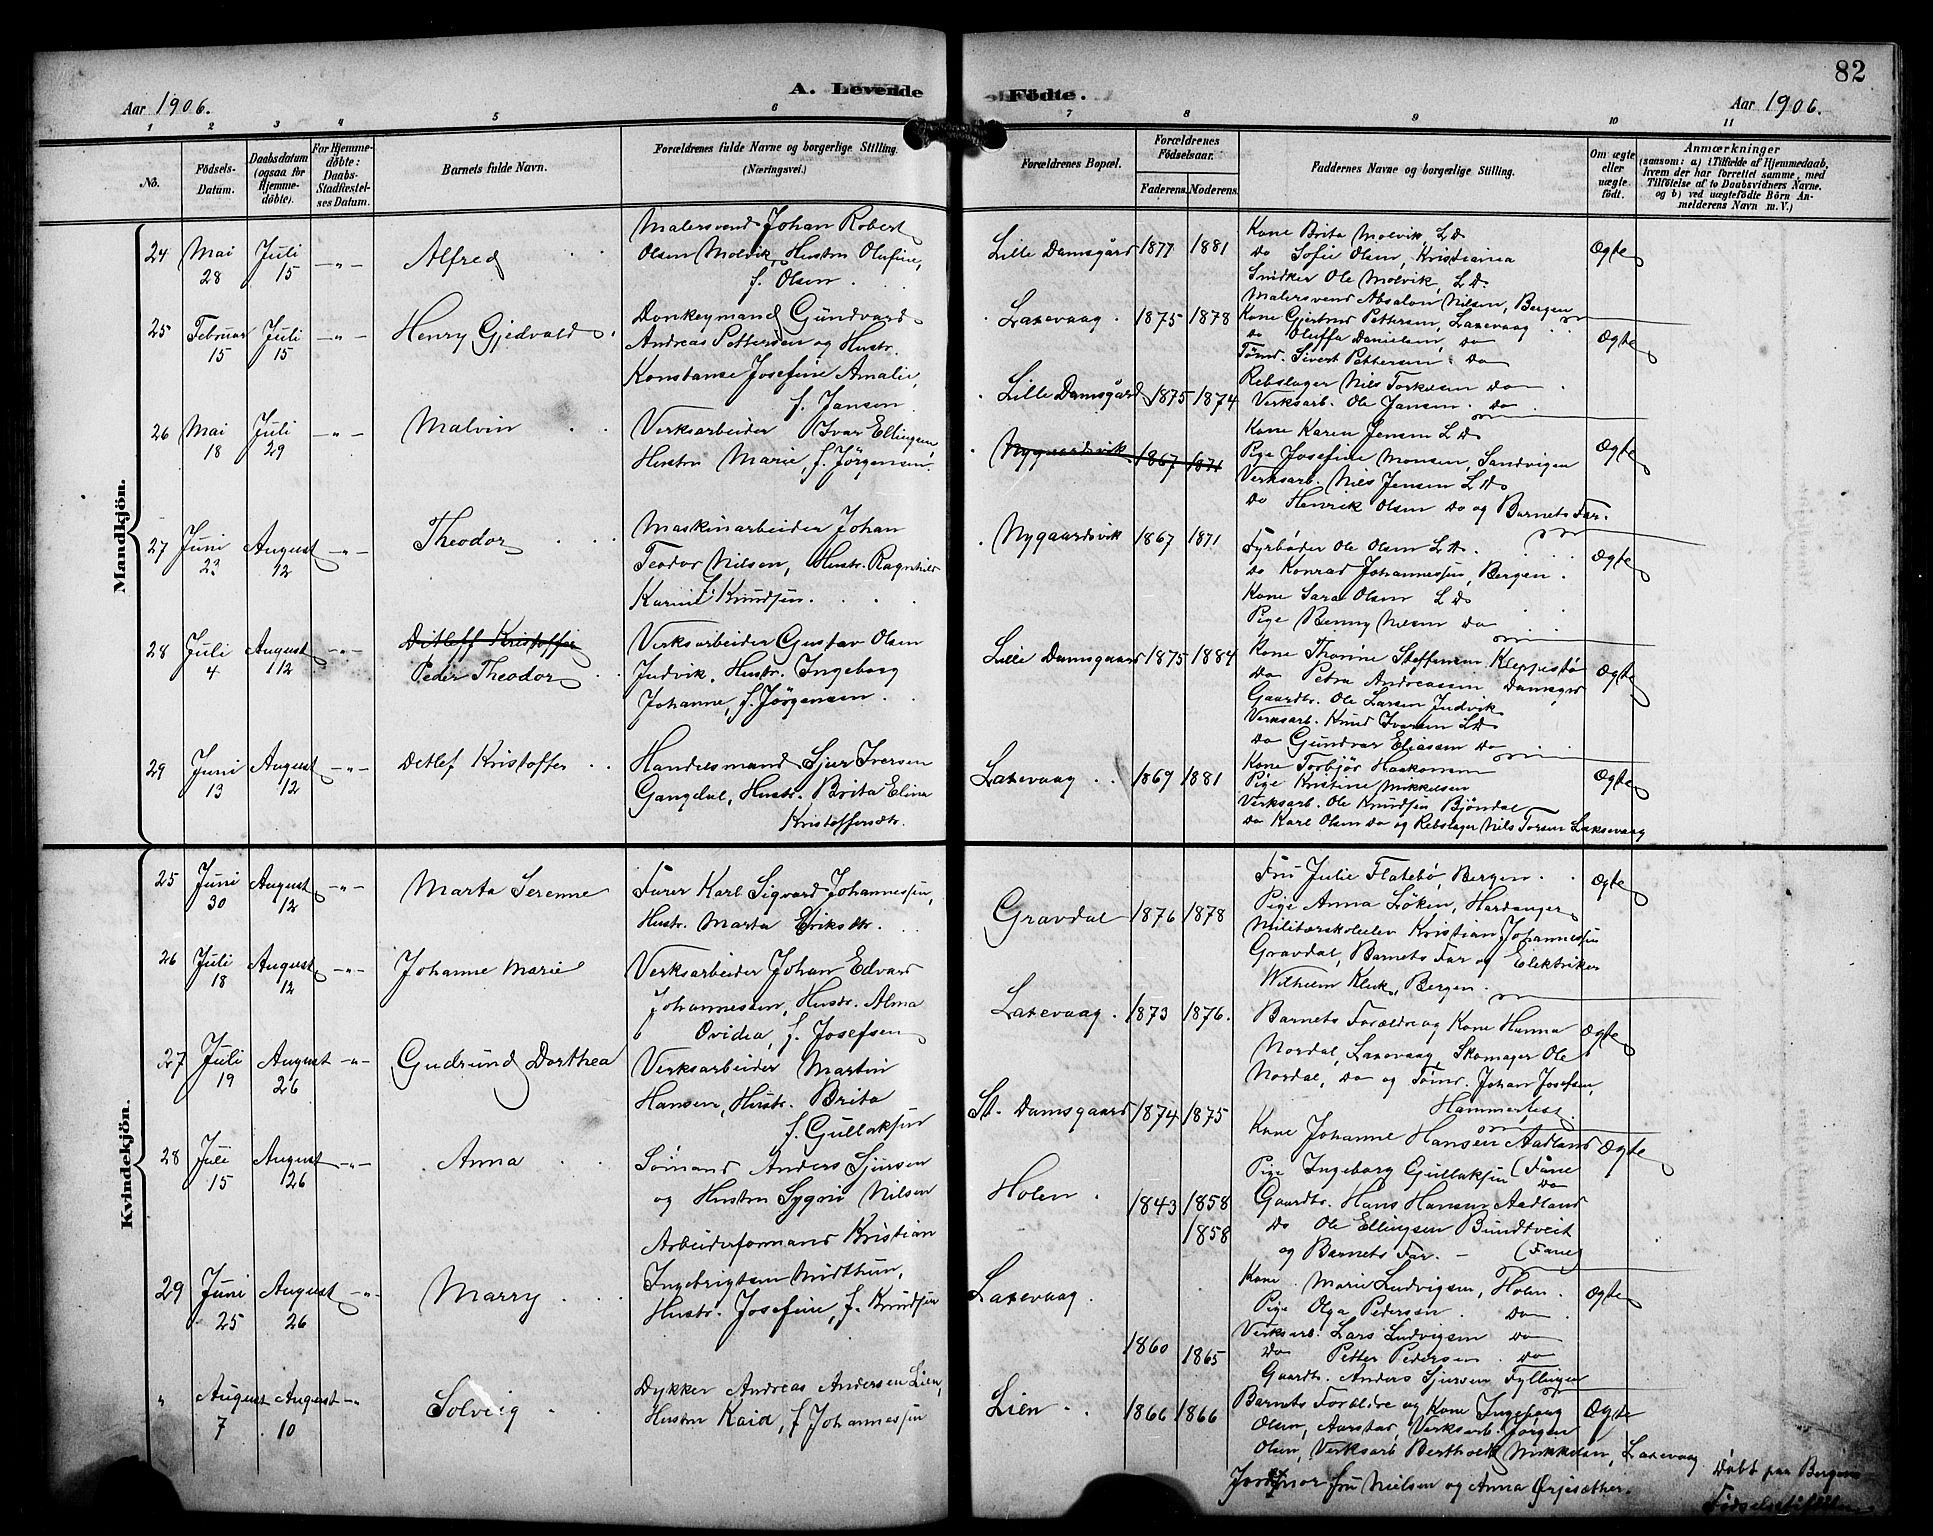 82
A. Levende Födte.
Aar 1906.
Aar 1906.
1 2 3 4 5 6 7 8 9 10 11
No.
Fødsels-Datum.
Daabsdatum (ogsaa for Hjemmedöbte).
For Hjemmedöbte: Daabs-Stadfæstelses Datum.
Barnets fulde Navn.
Forældrenes fulde Navne og borgerlige Stilling. (Næringsvei.)
Forældrenes Bopæl.
Forældrenes Födselsaar.
Faderens. Moderens.
Faddernes Navne og borgerlige Stilling.
Om ægte eller uægte födt.
Anmærkninger
(saasom: a) i Tilfælde af Hjemmedaab, hvem der har forrettet samme, med Tilföielse af to Daabsvidners Navne, og b) ved uægtefödte Börn Anmelderens Navn m. V.)
Mandkjön.
24 Mai 28 Juli 15 -"- Alfred
Malersvend Johan Robert
Olsen Molvik, Hustru Olufine,
f. Olsen.
Lille Damsgård 1877 1881
Kone Brita Molvik L D
Do Sofie Olsen, Kristiania
Snidker Ole Molvik, L D.
Malersvend Absalon Nilsen, Bergen
Ægte
25 Februar 15 Juli 15 -"- Henry Gjedvald
Donkeymand Gundvard
Andreas Pettersen og Hustr.
Konstanse Josefine Amalie,
f. Jansen
Laxevaag 1875 1878
Kone Gjertrud Pettersen, Laxevaag
Do Oluffa Danielsen, do
Tømd. Sivert Pettersen do
Rebslager Nils Torkelsen do
Verksarb. Ole Jansen do
Ægte
26 Mai 18 Juli 29 -"- Malvin
Verksarbeider Ivar Ellingsen,
Hustru Marie, f. Jørgensen.
Lille Damsgård 1875 1874
Nygaardsvik 1867 1871
Kone Karen Jensen L D
Pige Josefine Monsen, Sandvigen
Verksarb. Nils Jensen L D
Do Henrik Olsen Do og Barnets Far.
Ægte
27 Juni 23 August 12 -"- Theodor
Maskinarbeider Johan
Teodor Nilsen, Hustr. Ragnhild
Karine Knudsen.
Nygaardsvik 1867 1871
Fyrbøder Ole Olsen L D.
Do Konrad Johannessen, Bergen.
Kone Sara Olsen L D
Pige Benny Nilsen Do
Ægte
28 Juli 4 August 12 -"- Ditleff Kristoffer
Peder Theodor
Verksarbeider Gustav Olsen
Indvik, Hustr. Ingeborg
Johanne, f. Jørgensen.
Lille Damsgaard 1875 1884
Kone Thorine Steffensen Kleppestø
Do Petra Andreassen Damsgrd
Gaardbr. Ole Larsen Indvik
Verksarb. Knud Ivarsen L D
Do Gundvar Eliassen Do
Ægte
29 Juni 13 August 12 -"- Ditlef Kristoffer
Handelsmand Sjur Iversen
Gangdal, Hustr. Brita Elina
Kristoffersdtr.
Laxevaag 1869 1881
Kone Torbjør Haakonsen
Pige Kristine Mikkelsen
Verksarb. Ole Knudsen Bjøndal
Do Karl Olsen Do og Rebslager Nils Torsen Laksevaag
Ægte
Kvindekjön.
25 Juni 30 August 12 -"- Marta Serenne
Furer Karl Sigvard Johannessen,
Hustr. Marta Eriksdtr.
Gravdal 1876 1878
Fru Julie Flatebø, Bergen.
Pige Anna Løkén, Hardanger
Militærskoleelev Kristian Johannessen
Gravdal, Barnets Far og Elektriker
Wilhelm Kluk, Bergen.
Ægte
26 Juli 18 August 12 -"- Johanne Marie
Verksarbeider Johan Edvard
Johannessen, Hustr. Alma
Ovidia, f. Josefsen
Laxevaag 1873 1876.
Barnets Forældre og Kone Hanna
Nordal, Laxevaag, Skomager Ole
Nordal, Do og Tømr. Johan Josefsen,
Hammerfest.
Ægte
27 Juli 19 August 26 -"- Gudrund Dorthea
Verksarbeider Martin
Hansen, Hustr. Brita
f. Gullaksen
St. Damsgaard 1874 1875
Kone Johanne Hansen Aadland
Pige Ingeborg Gullaksen (Fane
Do
Gaardbr. Hans Hansen Aadland
Do Ole Ellingsen Bundtveit
og Barnets Far. - (Fane)
Ægte
28 Juli 15 August 26 -"- Anna
Sømand Anders Sjursen
og Hustru Sygni Nilsen
Holen 1843 1858
1858
Kone Marie Ludvigsen, Holen.
Pige Olga Pedersen Do
Verksarb. Lars Ludvigsen do
Do Petter Pedersen do
Gaardbr. Anders Sjursen Fyllingen
Ægte
29 Juni 25 August 26 -"- Marry
Arbeiderformand Kristian
Ingebrigtsen Midthun,
Hustr. Josefine, f. Knudsen
Laxevaag 1860 1865
" August 7 August 10 -"- Solveig
Dykker Andreas Andersen Lien,
Hustru Kaia, f Johannessen
Lien 1866 1866
Barnets Forældre og Kone Ingeborg
Olsen, Aarstad, Verksarb. Jørgen
Olsen, Verksarb Berthold Mikkelsen, Laxevaag
Jordmor fru Nielsen og Anna Ørjesæther.
Ægte
Døbt paa Bergens
Fødselsstiftelse